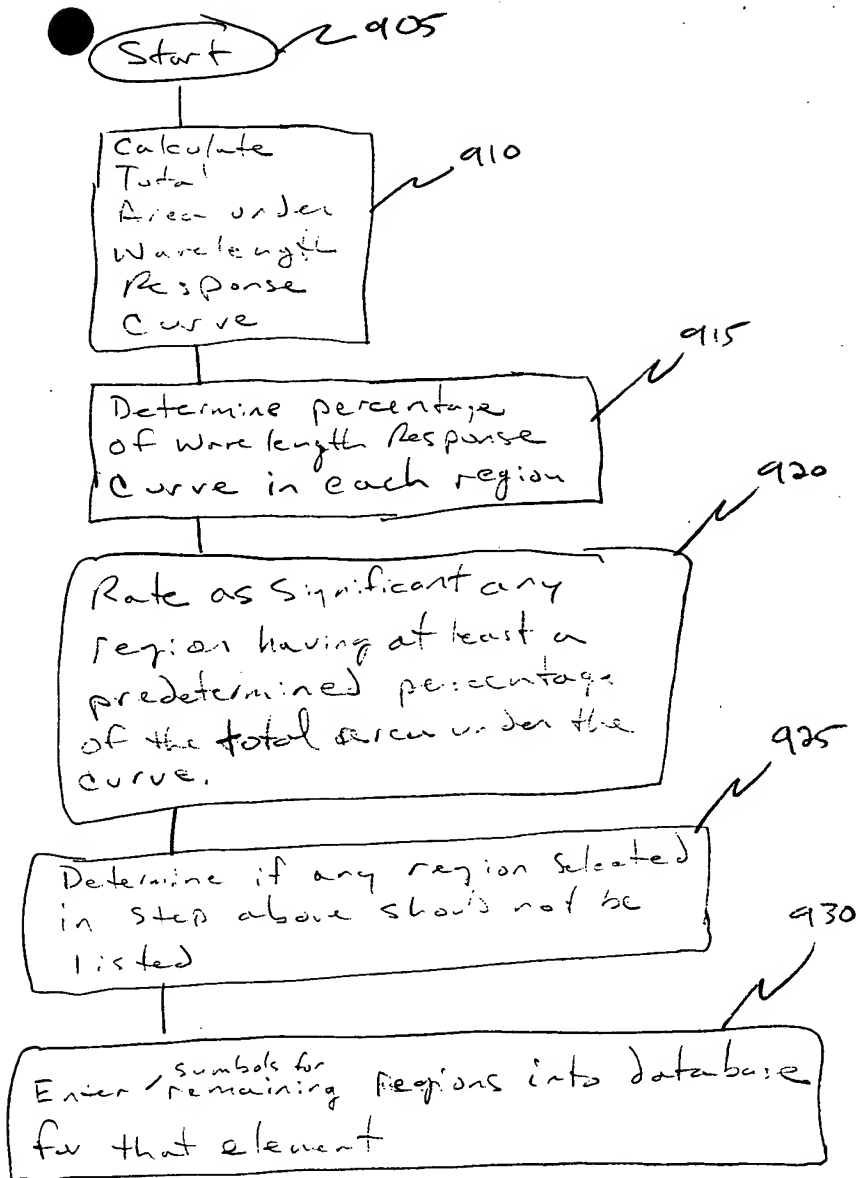 Start
905
Calculate
Total
Area under
Wavelength
Response
Curve
910
Determine percentage
of Wavelength Response
Curve in each region
915
Rate as Significant any
region having at least a
predetermined percentage
of the total area under the
curve.
920
Determine if any region Selected
in step above should not be
listed
925
symbols for
Enter remaining regions into database
for that element
930